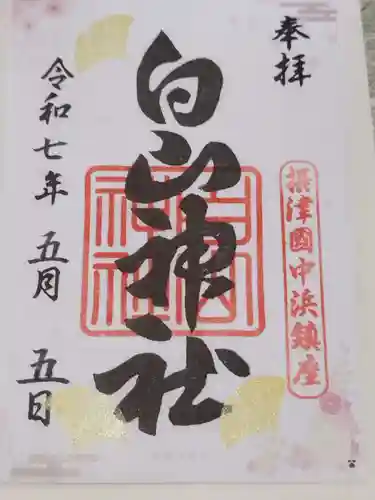 奉拝
摂津国中浜鎮座
白山神社
白山神社
令和七年 五月 五日